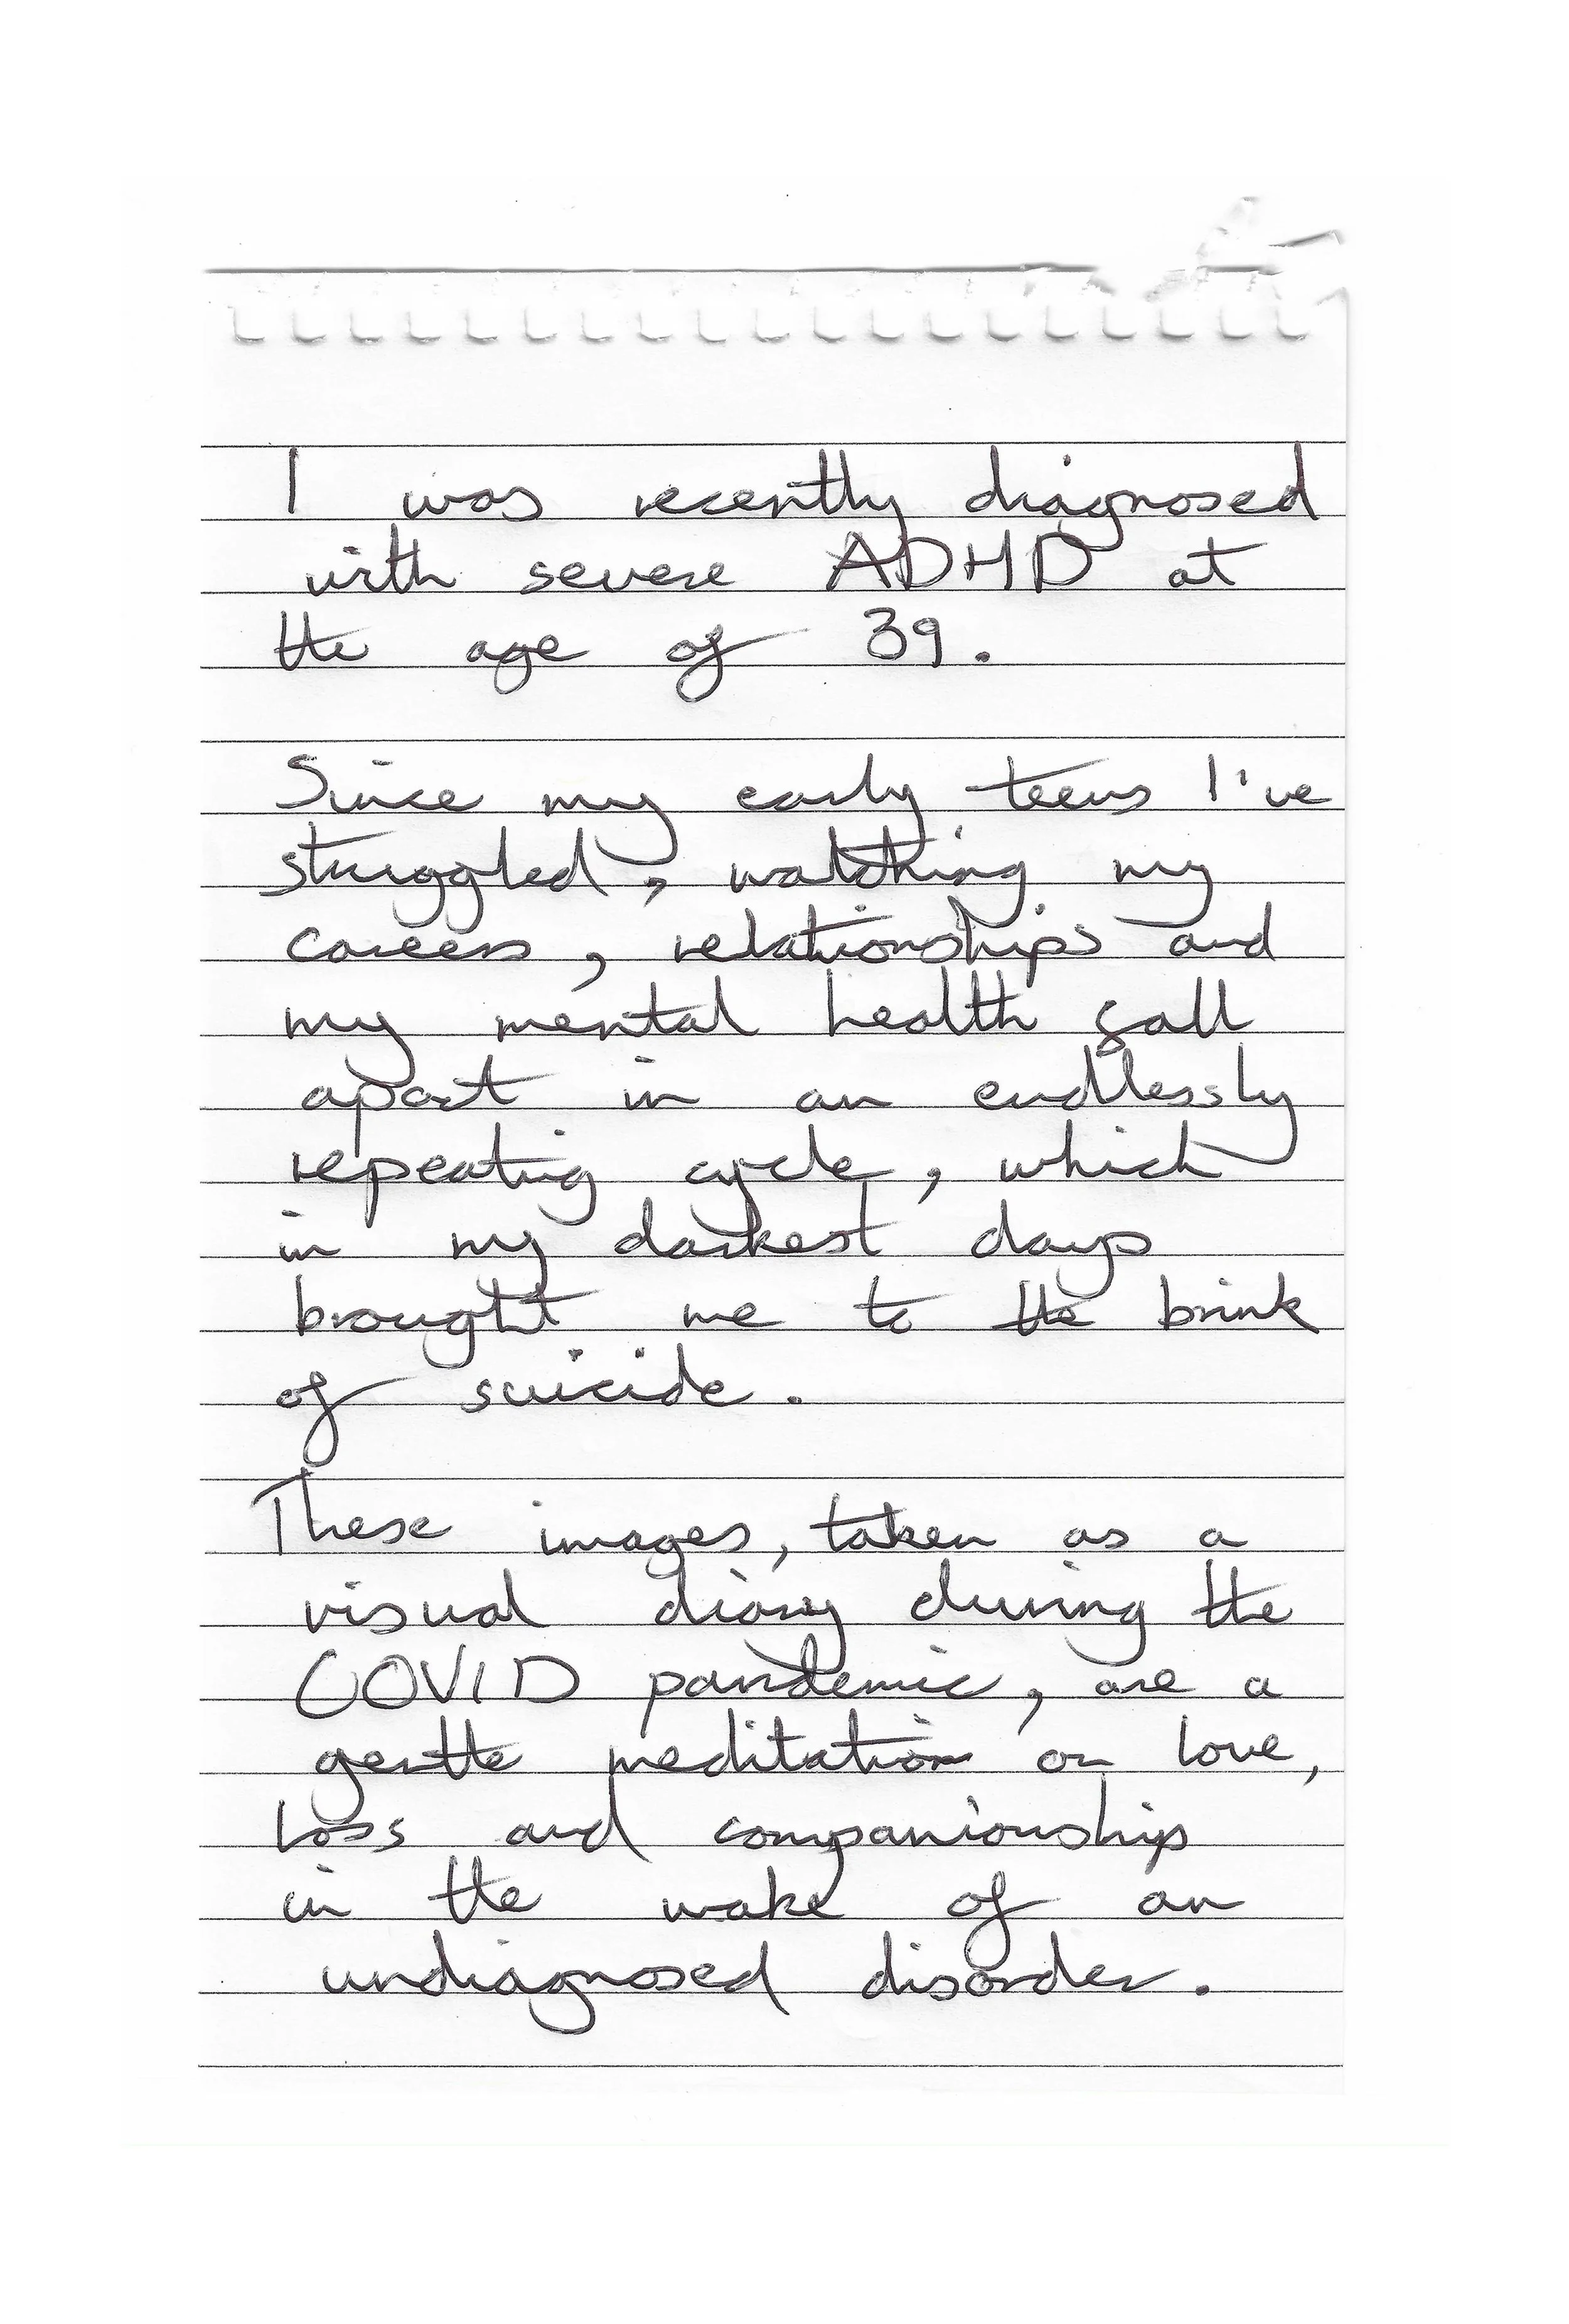 I was recently diagnosed
with severe ADHD at
the age of 39.
Since my early teens I've
struggled, watching my
careers, relationships and
my mental health fall
apart in an endlessly
repeating cycle, which
in my darkest days
brought me to the brink
of suicide.
These images, taken as a
visual diary during the
COVID pandemic, are a
gentle meditation on love,
loss and companionship
in the wake of an
undiagnosed disorder.